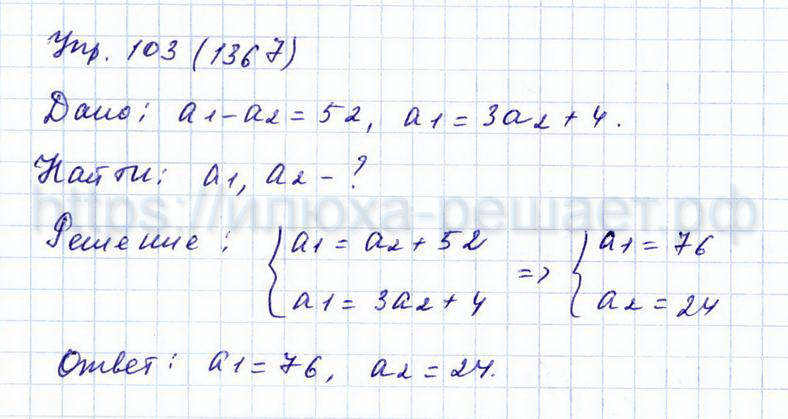 Упр. 103 (1367)
Дано: a1-a2=52, a1=3a2+4.
Найти: a1, a2-?
https://илюха-решает.рф
Решение: {a1=a2+52 => {a1=76
a1=3a2+4 a2=24
Ответ: a1=76, a2=24.